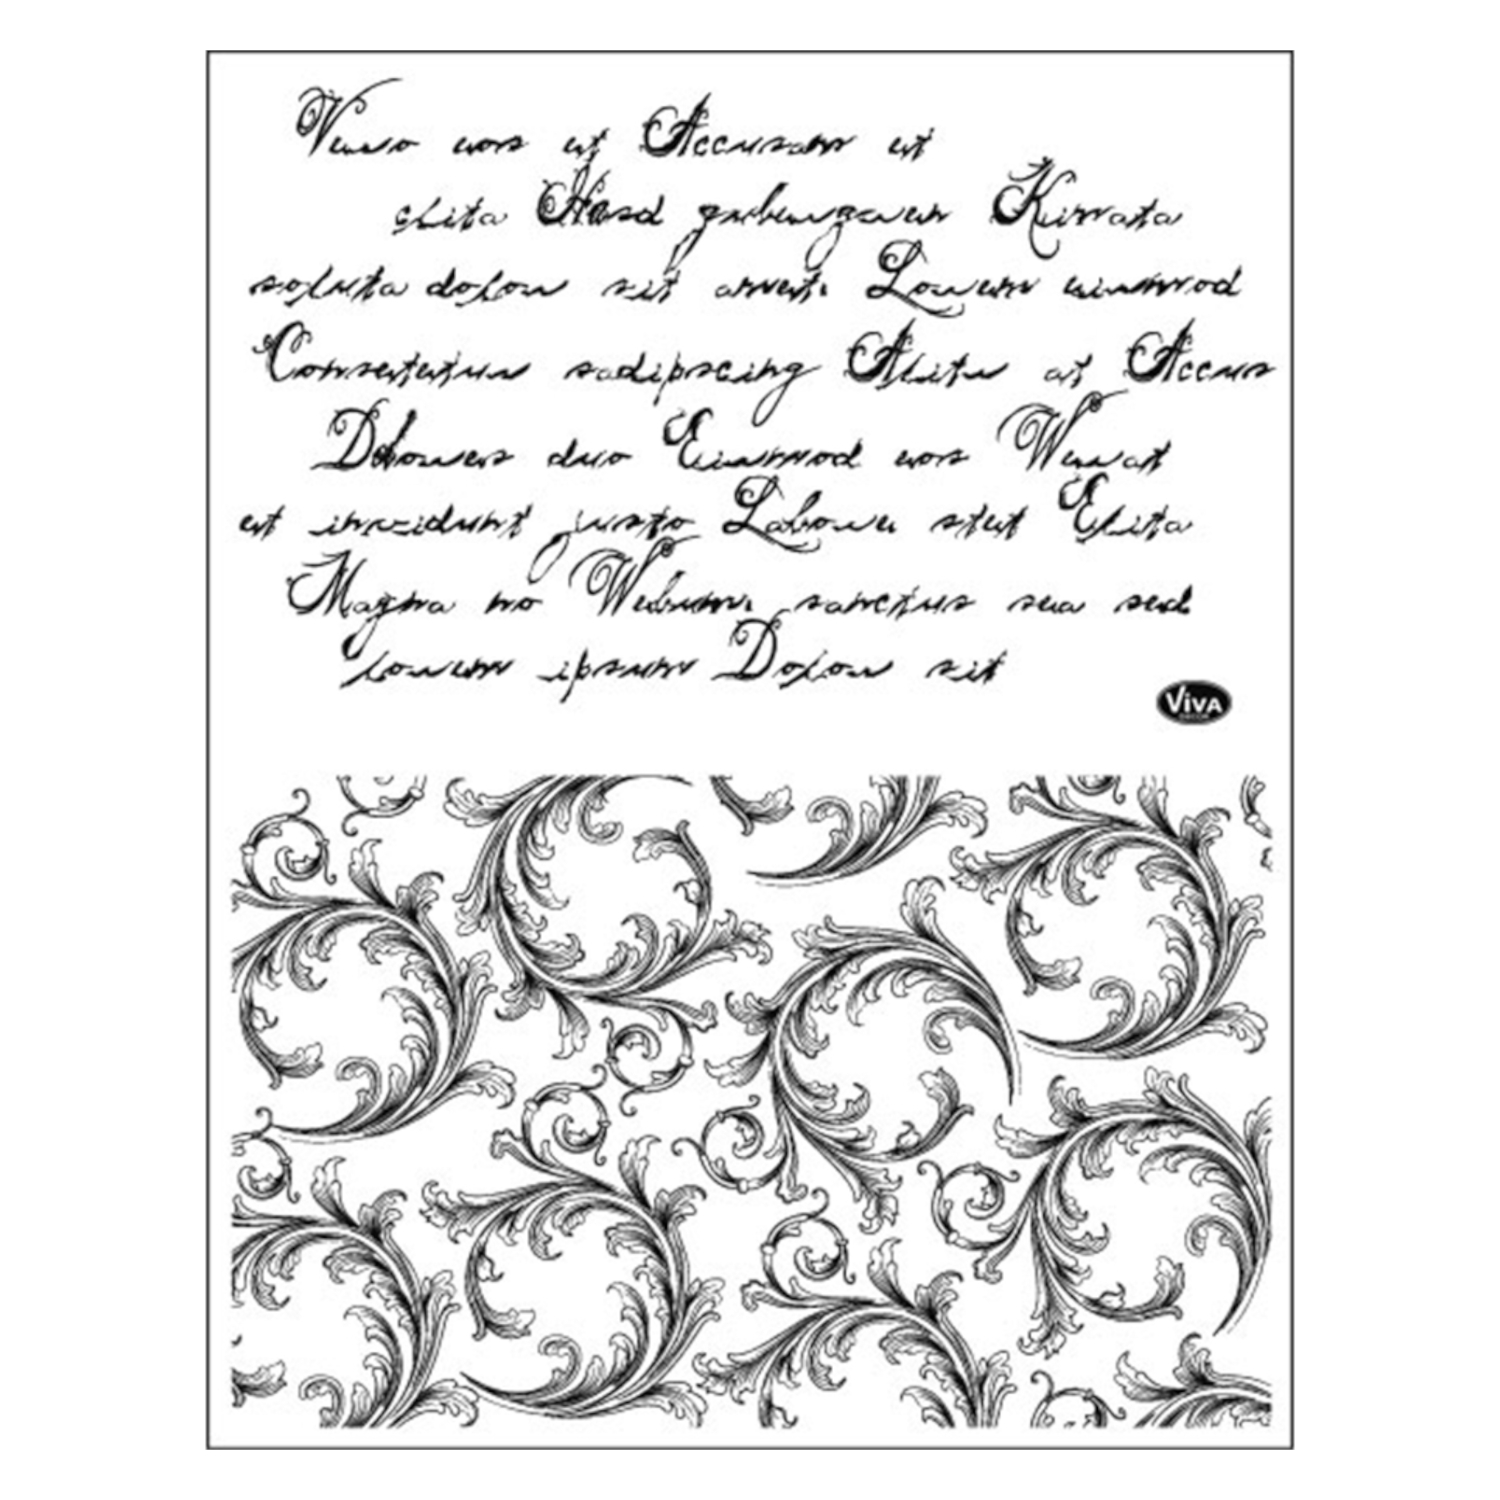 Vero eos et Accusam et
clita Kasd gubergren Kimata
soluta dolor sit amet. Lorem eirmod
Consetetur sadipscing Alitu at Accus
Dolores duo Eirmod eos Verat
et invidunt justo Labore stet Elita
Magna no Rebum. sanctus sea sed
lorem ipsum Dolor sit
ViVA
DECOR